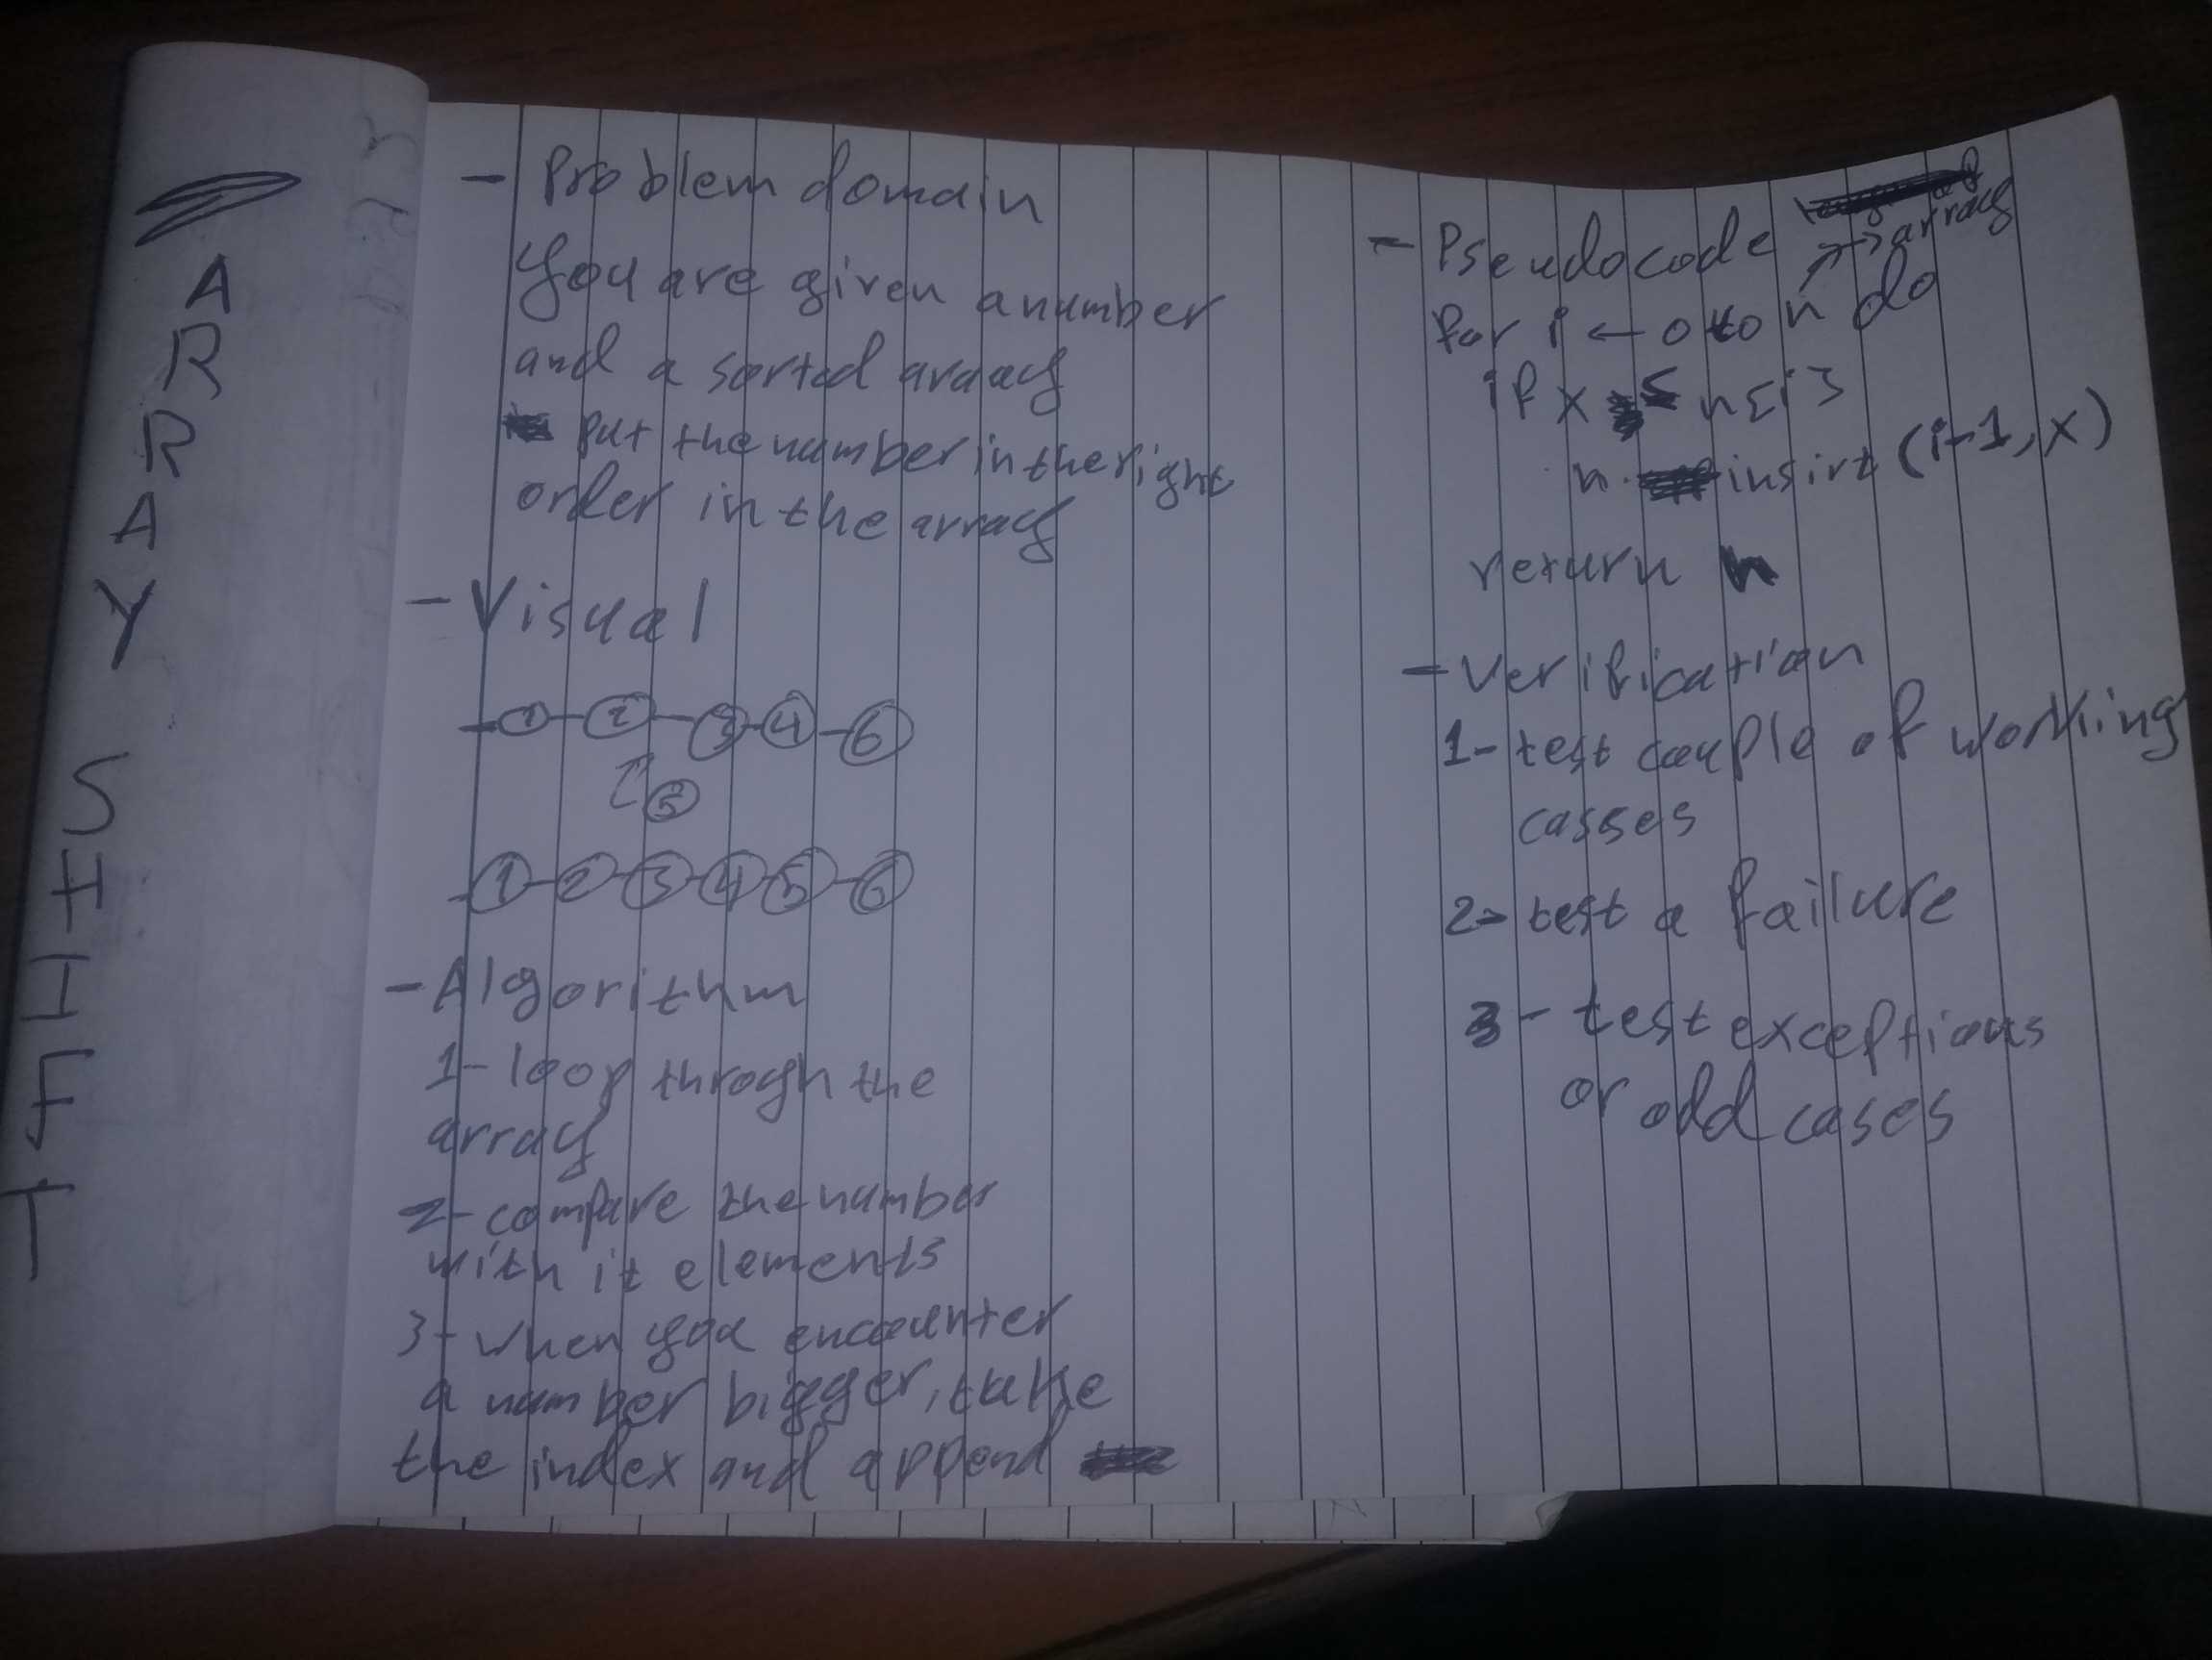 ARRAY SHIFT
- Problem domain
You are given a number
and a sorted araay
put the number in the right
order in the array
- Visual
1 2 3 4 6
5
1 2 3 4 5 6
- Algorithm
1- loop throgh the
array
2- compare the number
with it elements
3- when you encounter
a number bigger, take
the index and append
- Pseudocode
→ array
for i ← 0 to n do
if x ≤ n[i]
n. insirt (i-1, x)
return n
- Verification
1- test couple of working
casses
2- test a failure
3- test exceptions
or odd cases